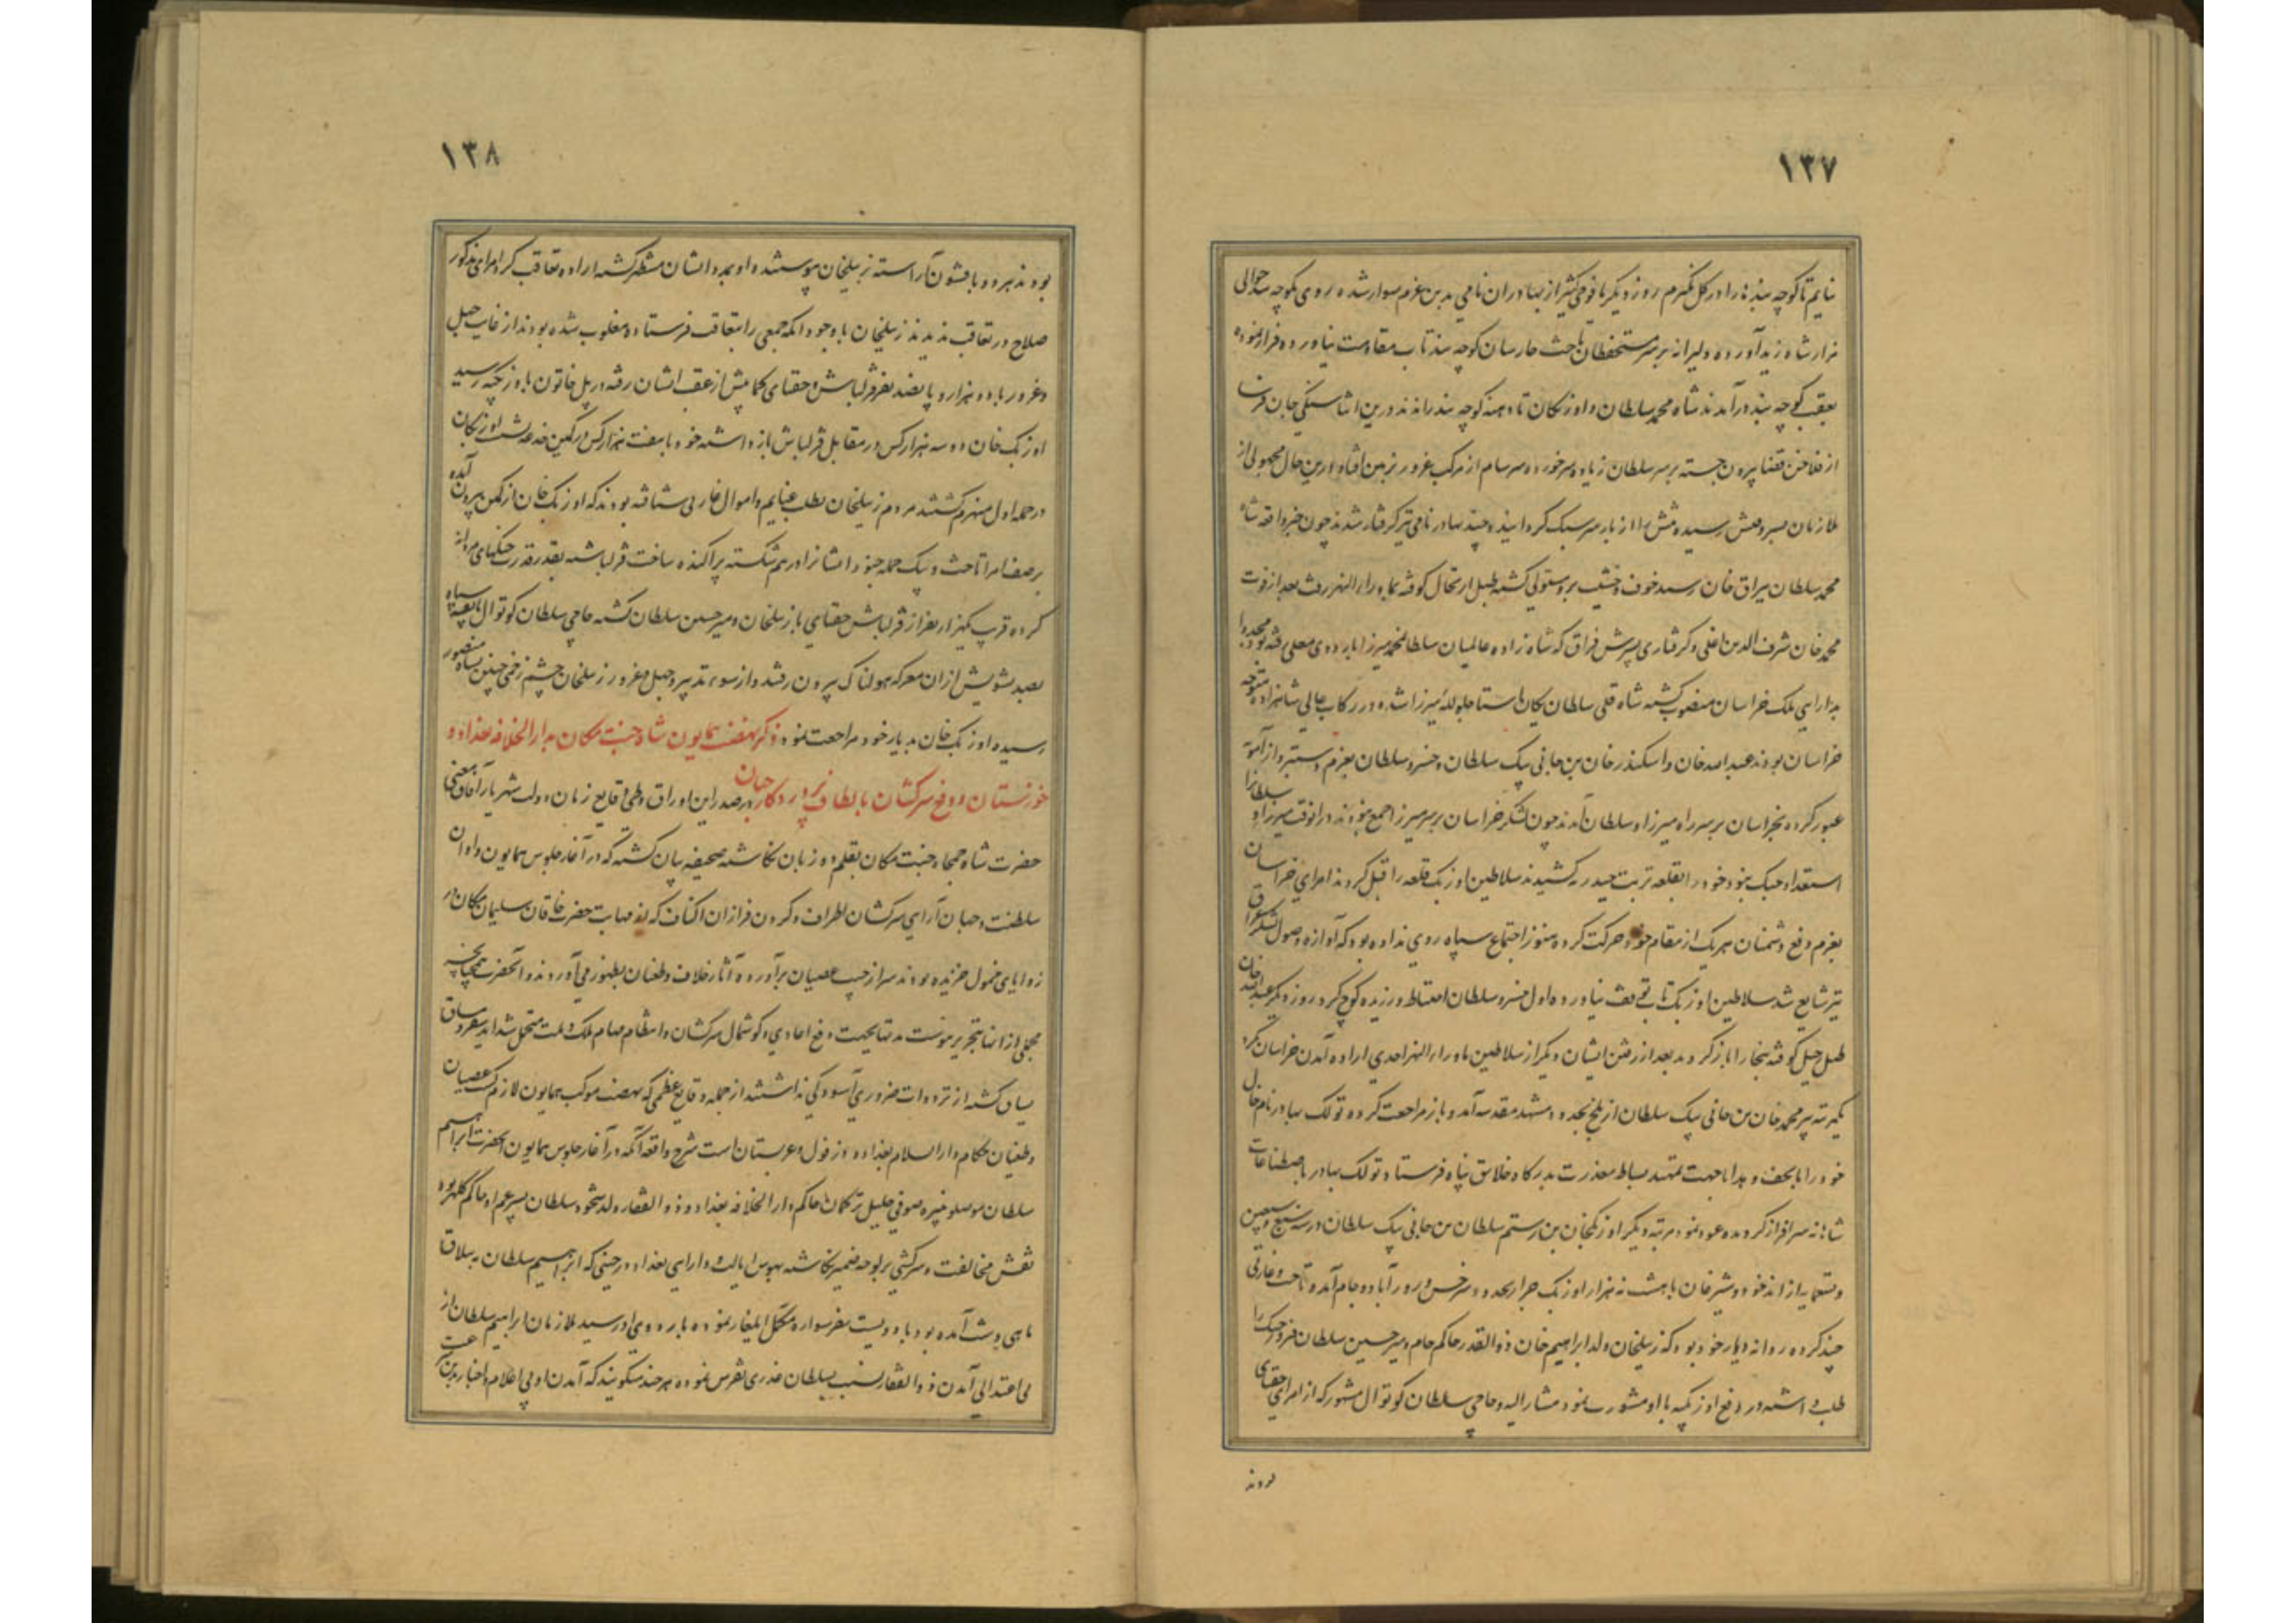 ۱۳۷
نمایم تا کوچه بندها را در کل بگیرم روز دیگر با فوجی کثیر از بهادران نامی بدین عزم سوار شده روی بکوچه بند حوالی
مزار شاه زید آورده دلیرانه بر سر مستحفظان تاخت حارسان کوچه بند تاب مقاومت نیاورده فرار نموده
بعقب کوچه بند درآمدند شاه محمد سلطان و اوزبکان تا دهنه کوچه بند راندند درین اثنا سنگی جان فرسا
از فلاخن قضا بیرون جسته بر سر سلطان زیاده سر خورده سرسام از مرکب غرور بزمین افتاد درین حال مجهولی از
ملازمان بسر وقتش رسیده تنش را از بار سر سبک گردانید و چند بهادر نامی نیز گرفتار شدند چون خبر واقعه شاه
محمد سلطان ببراق خان رسید خوف و خشیت برو مستولی گشته طبل ارتحال کوفته بماوراءالنهر رفت بعد از فوت
محمد خان شرف الدین اغلی و گرفتاری پسرش قزاق که شاهزاده عالمیان سلطان محمد میرزا باردوی معلی رفته بود مجددا
بدارایی ملک خراسان منصوب گشته شاه قلی سلطان یکان استاجلو لله میرزا شده در رکاب عالی شاهزاده متوجه
خراسان بودند عبدالله خان و اسکندر خان بن جانی بیک سلطان و خسرو سلطان بعزم دستبرد از آمویه
عبور کرده بخراسان بر سر راه میرزا و سلطان آمدند چون لشکر خراسان بر سر میرزا جمع نبودند در آنوقت میرزا و سلطانرا
استعداد جنگ نبود خود را بقلعه تربت حیدریه کشیدند سلاطین اوزبک قلعه را قبل کردند امرای خراسان
بعزم دفع دشمنان هر یک از مقام خود حرکت کرده هنوز اجتماع سپاه روی نداده بود که آوازه وصول لشکر عراق
نیز شایع شد سلاطین اوزبک تاب توقف نیاورده اول خسرو سلطان احتیاط ورزیده کوچ کرد روز دیگر عبدالله خان
طبل رحیل کوفته ببخارا بازگردید بعد از رفتن ایشان دیگر از سلاطین ماوراءالنهر احدی اراده آمدن خراسان نکرد
یکمرتبه پیر محمد خان بن جانی بیک سلطان از بلخ بحدود مشهد مقدسه آمد و باز مراجعت کرده تولک بهادر نام خال
خود را با تحف و هدایا جهت تمهید بساط معذرت بدرگاه خلایق پناه فرستاد و تولک بهادر باصطناعات
شاهانه سرافراز گردیده عود نمود مرتبه دیگر اوزبکخان بن رستم سلطان بن جانی بیک سلطان در سنه سبع و سبعین
و تسعمایه از اندخود و شبرغان با هشت نه هزار اوزبک جرار بحدود سرخس و زورآباد و جام آمد و تاخت و غارتی
چند کرده روانه دیار خود بود که زینلخان ولد ابراهیم خان ذوالقدر حاکم جام و میر حسین سلطان فیروز جنگ را
طلب داشته در دفع اوزبکیه با او مشورت نمود مشارالیه و حاجی سلطان کوتوال مشهور که از امرای جغتای
بودند
۱۳۸
بودند هر دو با قشون آراسته بزینلخان پیوستند و او بمدد ایشان مستظهر گشته اراده تعاقب کرد امرای مذکور
صلاح در تعاقب ندیدند زینلخان با وجود آنکه جمعی را بتعاقب فرستاده مغلوب شده بودند از غایت جهل
و غرور با دو هزار و پانصد نفر قزلباش و جغتای کما بیش از عقب ایشان رفته در پل خاتون باوزبکیه رسید
اوزبک خان دو سه هزار کس در مقابل قزلباش باز داشته خود با هفت هزار کس در کمین خدعه نشست اوزبکان
در حمله اول منهزم گشتند مردم زینلخان بطلب غنایم و اموال غارتی شتافته بودند که اوزبک خان از کمین بیرون آمده
بر صف امرا تاخت و بیک حمله جنود ایشانرا درهم شکسته پراکنده ساخت قزلباشیه بقدر قدرت جنگهای مردانه
کرده قرب یکهزار نفر از قزلباش و جغتای با زینلخان و میر حسین سلطان کشته حاجی سلطان کوتوال با بقیه سپاه
بصد تشویش از آن معرکه هولناک بیرون رفتند و از سوء تدبیر و جهل و غرور زینلخان چشم زخمی چنین بسپاه منصور
رسیده اوزبک خان بدیار خود مراجعت نمود ذکر نهضت همایون شاه جنت مکان بدارالخلافه بغداد و
خوزستان و دفع سرکشان بالطاف پروردگار جهان در صدر این اوراق و طی وقایع زمان دولت شهریار آفاق یعنی
حضرت شاه جمجاه جنت مکان بقلم دو زبان نگاشته صحیفه بیان گشته که در آغاز جلوس همایون و اوان
سلطنت و جهان آرایی سرکشان اطراف و گردن فرازان اکناف که از مهابت حضرت خاقان سلیمان مکان در
زوایای خمول خزیده بودند سر از جیب عصیان برآورده آثار خلاف و طغیان بظهور می‌آوردند و آنحضرت چنانچه
مجملی از آنها بتحریر پیوست مدتها بجهت دفع اعادی و گوشمال سرکشان و انتظام مهام ملک و ملت متحمل شداید سفر و مشاق
یساق گشته از ترددات ضروری آسودگی نداشتند از جمله وقایع عظمی که نهضت موکب همایون لازم گشت عصیان
و طغیان حکام دارالسلام بغداد و دزفول و عربستان است شرح واقعه آنکه در آغاز جلوس همایون آنحضرت ابراهیم
سلطان موصلو نبیره صوفی خلیل ترکمان حاکم دارالخلافه بغداد و ذوالفقار ولد نخود سلطان پسر عم او حاکم کلهر بود
نقش مخالفت و سرکشی بر لوحه ضمیر نگاشته بهوس ایالت و دارایی بغداد در حینی که ابراهیم سلطان به ییلاق
ماهی دشت آمده بود با دویست نفر سواره مکمل ایلغار نموده باردوی او رسید ملازمان ابراهیم سلطان از
بی اعتدالی آمدن ذوالفقار نسبت بسلطان غدری تفرس نموده هر چند میگویند که آمدن او بی اعلام و اخبار بدین